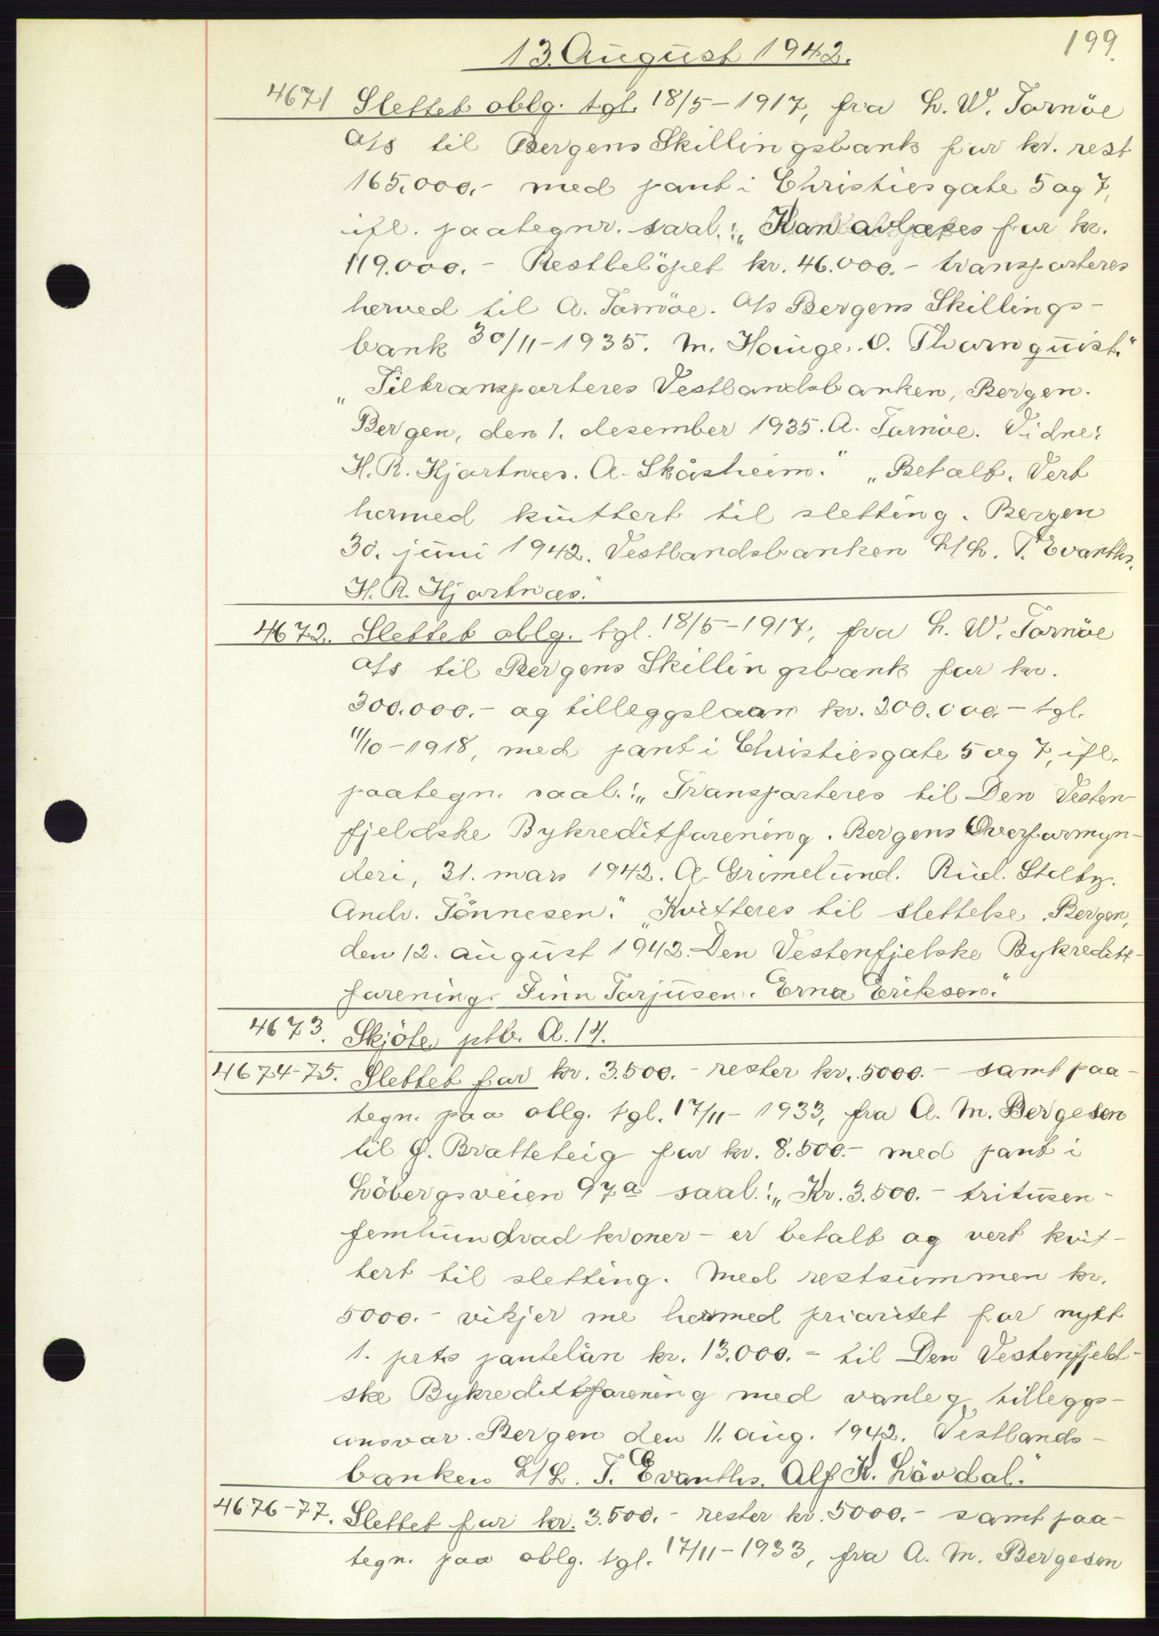 199.
13. August 1942.
4671 Slettet oblg. tgl. 18/5-1917, fra L. W. Tornöe
A/s til Bergens Skillingsbank for kr. rest
165.000,- med pant i Christiesgate 5 og 7,
ifl. paategnr. saal.: „Kan avlyses for kr.
119.000.- Restbelöpet kr. 46.000.- transporteres
herved til A. Tornöe. A/s Bergens Skillings-
bank 30/11-1935. M. Hauge. O. Thornquist."
„Tiltransporteres Vestlandsbanken, Bergen.
Bergen, den 1. desember 1935. A. Tornöe. Vidne:
H. R. Kjartnes. A. Skåsheim." „Betalt. Vert
hermed kvittert til sletting. Bergen
30. juni 1942. Vestlandsbanken L/L. T. Evanths.
H. R. Hjartnæs."
4672. Slettet oblg. tgl. 18/5-1917, fra L. W. Tornöe
A/s til Bergens Skillingsbank for kr.
300.000.- og tilleggslaan kr. 200.000.- tgl.
11/10-1918, med pant i Christiesgate 5 og 7, ifl.
paategn. saal.: „Transporteres til Den Vesten-
fjeldske Bykreditforening. Bergens Overformyn-
deri, 31. mars 1942. A. Grimelund. Rud. Stelby.
Andr. Tönnesen." „Kvitteres til slettelse. Bergen,
den 12. august 1942. Den Vestenfjelske Bykreditt-
forening. Finn Torjusen. Erna Eriksen."
4673. Skjöte ptb. A. 14.
4674-75. Slettet for kr. 3.500.- rester kr. 5000.- samt paa-
tegn. paa oblg. tgl. 17/11-1933, fra A. M. Bergesen
til Ø. Bratteteig for kr. 8.500.- med pant i
Löbergsveien 97a saal.: „Kr. 3.500.- tritusen-
femhundrad kroner - er betalt og vert kvit-
tert til sletting. Med restsummen kr.
5000.- vikjer me hermed prioritet for nytt
1. prts pantelån kr. 13.000.- til Den Vestenfjeld-
ske Bykredittforening med vanleg tilleggs-
ansvar. Bergen den 11. aug. 1942. Vestlands-
banken L/L. T. Evanths. Alf K. Lövdal."
4676-77. Slettet for kr. 3.500.- rester kr. 5000.- samt paa-
tegn. paa oblg. tgl. 17/11-1933, fra A. M. Bergesen